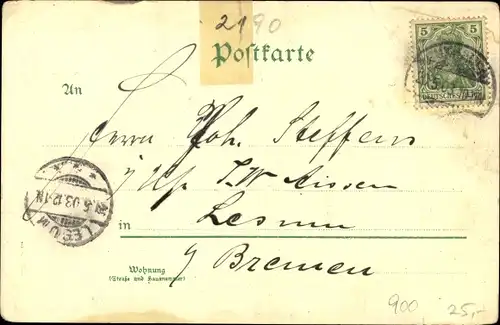 2190
Postkarte
5
DEUTSCHES REICH
An
Herrn Joh. Steffens
LESUM
5.03.12-1N
in Lesum
Bremen
Wohnung
(Straße und Hausnummer)
900 25,-